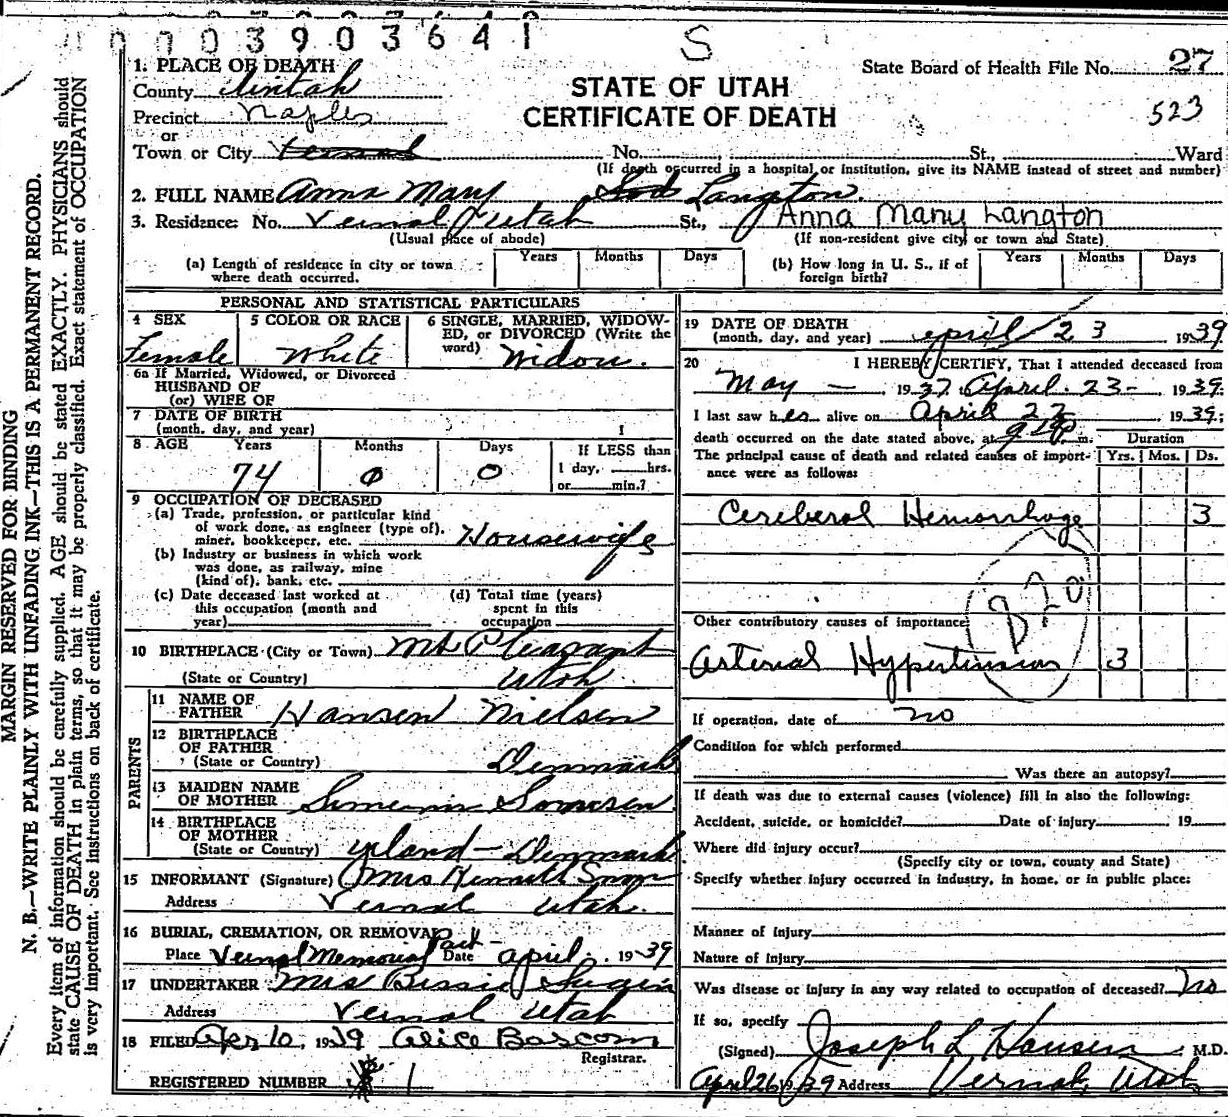 0003903641
S
1. PLACE OF DEATH
County Uintah
Precinct Naples
or
Town or City Vernal No. St., Ward
STATE OF UTAH
CERTIFICATE OF DEATH
State Board of Health File No. 27
523
(If death occurred in a hospital or institution, give its NAME instead of street and number)
2. FULL NAME Anna Mary Langton.
3. Residence: No. Vernal Utah St., Anna Mary Langton
(Usual place of abode) (If non-resident give city or town and State)
(a) Length of residence in city or town where death occurred. Years Months Days
(b) How long in U. S., if of foreign birth? Years Months Days
PERSONAL AND STATISTICAL PARTICULARS
4 SEX Female
5 COLOR OR RACE White
6 SINGLE, MARRIED, WIDOWED, or DIVORCED (Write the word) Widow.
6a If Married, Widowed, or Divorced
HUSBAND OF
(or) WIFE OF
7 DATE OF BIRTH
(month, day, and year)
8 AGE Years 74 Months 0 Days 0
If LESS than
1 day, hrs.
or min.?
9 OCCUPATION OF DECEASED
(a) Trade, profession, or particular kind
of work done, as engineer (type of),
miner, bookkeeper, etc. Housewife
(b) Industry or business in which work
was done, as railway, mine
(kind of), bank, etc.
(c) Date deceased last worked at
this occupation (month and
year)
(d) Total time (years)
spent in this
occupation
10 BIRTHPLACE (City or Town) Mt Pleasant
(State or Country) Utah
PARENTS
11 NAME OF
FATHER Hansen Nielsen
12 BIRTHPLACE
OF FATHER
(State or Country) Denmark
13 MAIDEN NAME
OF MOTHER
14 BIRTHPLACE
OF MOTHER
(State or Country) Denmark
15 INFORMANT (Signature) Mrs Kenneth Snow
Address Vernal Utah.
16 BURIAL, CREMATION, OR REMOVAL
Place Vernal Memorial Date April 1939
17 UNDERTAKER Mrs Bessie
Address Vernal Utah
18 FILED 1939 Alice Bascom
Registrar.
REGISTERED NUMBER 1
19 DATE OF DEATH
(month, day, and year) April 23 1939
20 I HEREBY CERTIFY, That I attended deceased from
May — 1937, April 23- 1939.
I last saw her alive on April 1939.
death occurred on the date stated above, at m.
Duration
The principal cause of death and related causes of import-
ance were as follows: Yrs. Mos. Ds.
Cereberal Hemorrhage 3
820
Other contributory causes of importance:
Arterial Hypertension 3
If operation, date of no
Condition for which performed
Was there an autopsy?
If death was due to external causes (violence) fill in also the following:
Accident, suicide, or homicide? Date of injury 19
Where did injury occur?
(Specify city or town, county and State)
Specify whether injury occurred in industry, in home, or in public place:
Manner of Injury
Nature of Injury
Was disease or injury in any way related to occupation of deceased? no
If so, specify
(Signed) Joseph L Hansen M.D.
April 26, 1939 Address Vernal, Utah
MARGIN RESERVED FOR BINDING
N. B.—WRITE PLAINLY WITH UNFADING INK—THIS IS A PERMANENT RECORD.
Every item of information should be carefully supplied. AGE should be stated EXACTLY. PHYSICIANS should
state CAUSE OF DEATH in plain terms, so that it may be properly classified. Exact statement of OCCUPATION
is very important. See instructions on back of certificate.